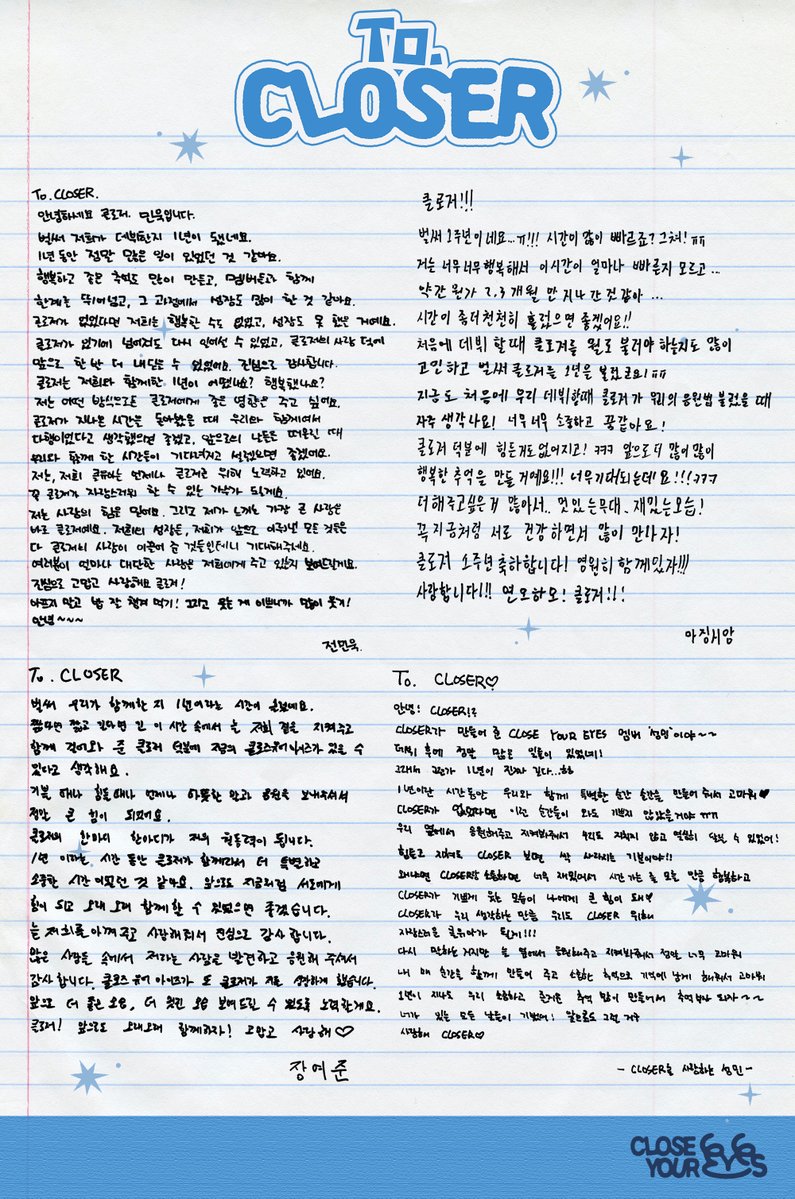 TO.
CLOSER
To. CLOSER.
안녕하세요 클로저. 민욱입니다.
벌써 저희가 데뷔한지 1년이 됐네요.
1년 동안 정말 많은 일이 있었던 것 같아요.
행복하고 좋은 추억도 많이 만들고, 멤버들과 함께
한계를 뛰어넘고, 그 과정에서 성장도 많이 한 것 같아요.
클로저가 없었다면 저희는 행복할 수도 없었고, 성장도 못 했을 거예요.
클로저가 있기에 넘어져도 다시 일어설 수 있었고, 클로저의 사랑 덕에
앞으로 한 발 더 내딛을 수 있었어요. 진심으로 감사합니다.
클로저는 저희와 함께한 1년이 어땠나요? 행복했나요?
저는 어떤 방식으로든 클로저에게 좋은 영향을 주고 싶어요.
클로저가 지나온 시간을 돌아봤을 때 우리와 함께여서
다행이었다고 생각했으면 좋겠고, 앞으로의 날들을 떠올릴 때
우리와 함께 할 시간들이 기다려지고 설렜으면 좋겠어요.
저는, 저희 클유아는 언제나 클로저를 위해 노력하고 있어요.
꼭 클로저가 자랑스러워 할 수 있는 가수가 될게요.
저는 사랑의 힘을 믿어요. 그리고 제가 느끼는 가장 큰 사랑은
바로 클로저예요. 저희의 성장은, 저희가 앞으로 이뤄낼 모든 것들은
다 클로저의 사랑이 이끌어 줄 것들일테니 기대해주세요.
여러분이 얼마나 대단한 사랑을 저희에게 주고 있는지 보여드릴게요.
진심으로 고맙고 사랑해요 클로저!
아프지 말고 밥 잘 챙겨 먹기! 그리고 웃는 게 이쁘니까 많이 웃기!
안녕~~~
전민욱.
클로저!!!
벌써 1주년이네요...ㅠ!!! 시간이 많이 빠르죠? 그쵸! ㅠㅠ
저는 너무너무 행복해서 이 시간이 얼마나 빠른지 모르고...
약간 뭔가 2, 3개월 만 지나간 것 같아...
시간이 좀 더 천천히 흘렀으면 좋겠어요!!
처음에 데뷔 할 때 클로저를 뭘로 불러야 하는지도 많이
고민하고 벌써 클로저를 1년을 불렀군요! ㅠㅠ
지금도 처음에 우리 데뷔할때 클로저가 우리의 응원법 불렀을 때
자주 생각나요! 너무너무 소중하고 꿈같아요!
클로저 덕분에 힘든거도 없어지고! ㅋㅋㅋ 앞으로 더 많이 많이
행복한 추억을 만들 거예요!!! 너무 기대되는데요!!! ㅋㅋㅋ
더 해주고 싶은 거 많아서.. 멋있는 무대, 재밌는 모습!
꼭 지금처럼 서로 건강하면서 많이 만나자!
클로저 1주년 축하합니다! 영원히 함께 있자!!!
사랑합니다!!! 연모하오! 클로저!!!
마징시앙
To. CLOSER
벌써 우리가 함께한 지 1년이라는 시간이 흘렀네요.
짧다면 짧고 길다면 긴 이 시간 속에서 늘 저희 곁을 지켜주고
함께 걸어와 준 클로저 덕분에 지금의 클로즈유어아이즈가 있을 수
있다고 생각해요.
기쁠 때나 힘들 때나 언제나 따뜻한 말과 응원을 보내주셔서
정말 큰 힘이 되었어요.
클로저의 한마디 한마디가 저의 원동력이 됩니다.
1년 이라는 시간 동안 클로저가 함께라서 더 특별하고
소중한 시간이었던 것 같아요. 앞으로도 지금처럼 서로에게
힘이 되고 오래 오래 함께 할 수 있었으면 좋겠습니다.
늘 저희를 아껴주고 사랑해줘서 진심으로 감사합니다.
많은 사람들 속에서 저라는 사람을 발견하고 응원해 주셔서
감사합니다. 클로즈 유어 아이즈가 또 클로저가 저를 성장하게 했습니다.
앞으로 더 좋은 모습, 더 멋진 모습 보여드릴 수 있도록 노력할게요.
클로저! 앞으로도 오래오래 함께하자! 고맙고 사랑해♡
장여준
To. CLOSER♡
안녕! CLOSER!!
CLOSER가 만들어 준 CLOSE YOUR EYES 멤버 '성민'이야~~
데뷔 후에 정말 많은 일들이 있었네!
그래서 그런가 1년이 진짜 길다...ㅎㅎ
1년이란 시간동안 우리와 함께 특별한 순간 순간을 만들어 줘서 고마워♥
CLOSER가 없었다면 이런 순간들이 와도 기쁘지 않았을거야 ㅠㅠ
우리 옆에서 응원해주고 지켜봐줘서 우리도 지치지 않고 열심히 달릴 수 있었어!
힘들고 지쳐도 CLOSER 보면 싹 사라지는 기분이야!!
왜냐하면 CLOSER랑 소통하면 너무 재밌어서 시간 가는 줄 모를 만큼 행복하고
CLOSER가 기쁘게 웃는 모습이 나에게 큰 힘이 돼♥
CLOSER가 우리 생각하는 만큼 우리도 CLOSER 위해
자랑스러운 클유아가 될게!!!
다시 말하는거지만 늘 옆에서 응원해주고 지켜봐줘서 정말 너무 고마워
내 매 순간을 함께 만들어 주고 소중한 추억으로 기억에 남게 해줘서 고마워
1년이 지나도 우리 소통하고 즐거운 추억 많이 만들어서 추억부자 되자~~
너가 있는 모든 날들이 기뻤어! 앞으로도 그럴 거구
사랑해 CLOSER♡
- CLOSER을 사랑하는 성민 -
CLOSE
YOUR EYES